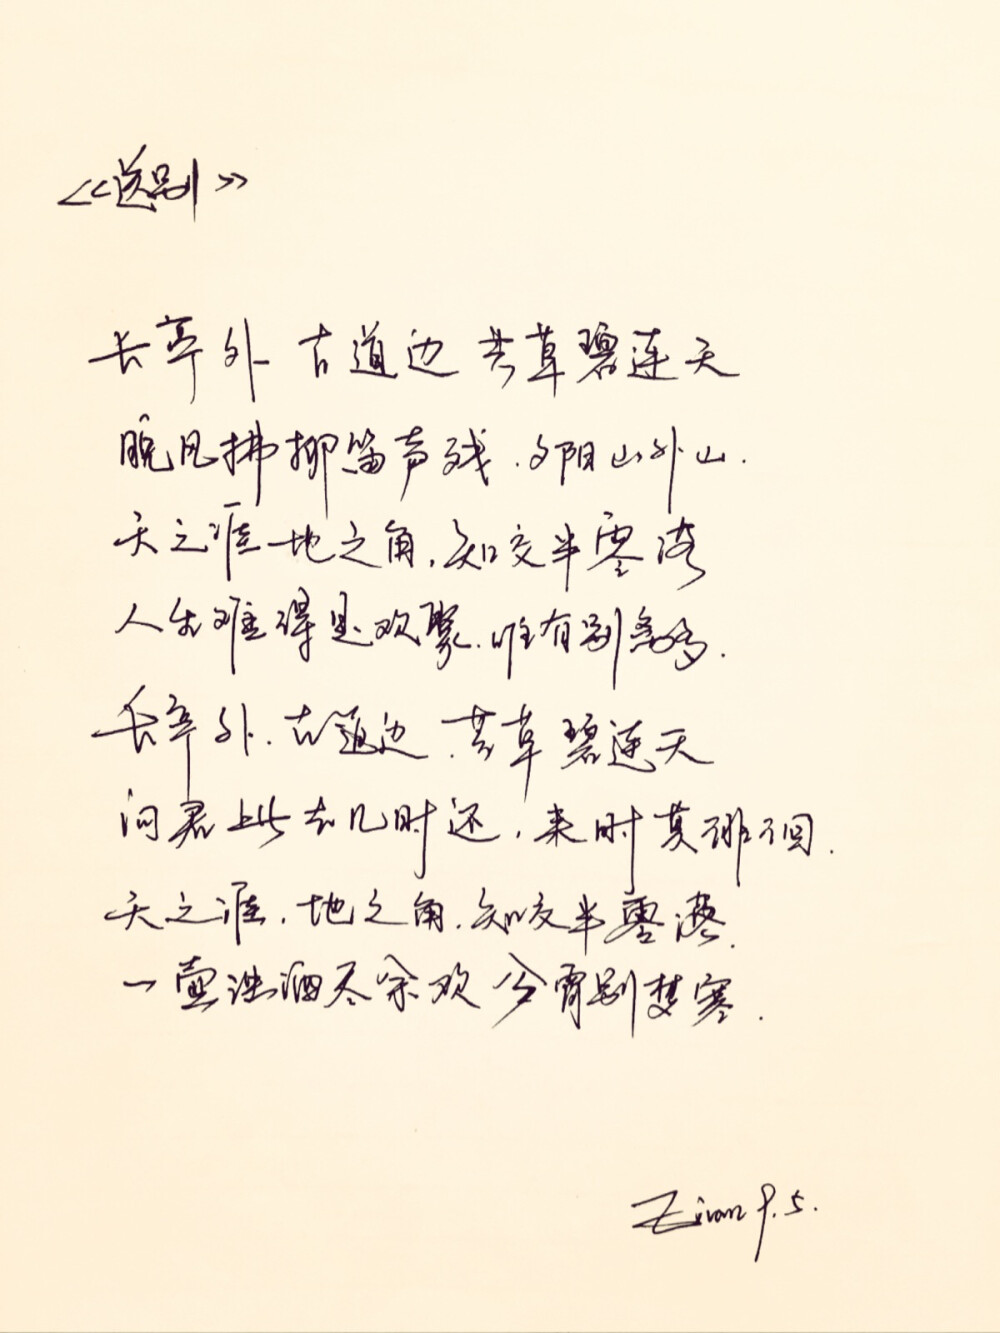 <<送别>>
长亭外 古道边 芳草碧连天
晚风拂柳笛声残.夕阳山外山.
天之涯 地之角,知交半零落
人生难得是欢聚.唯有别离多.
长亭外.古道边.芳草碧连天
问君此去几时还,来时莫徘徊.
天之涯.地之角.知交半零落.
一壶浊酒尽余欢 今宵别梦寒.
Zivan 9.5.